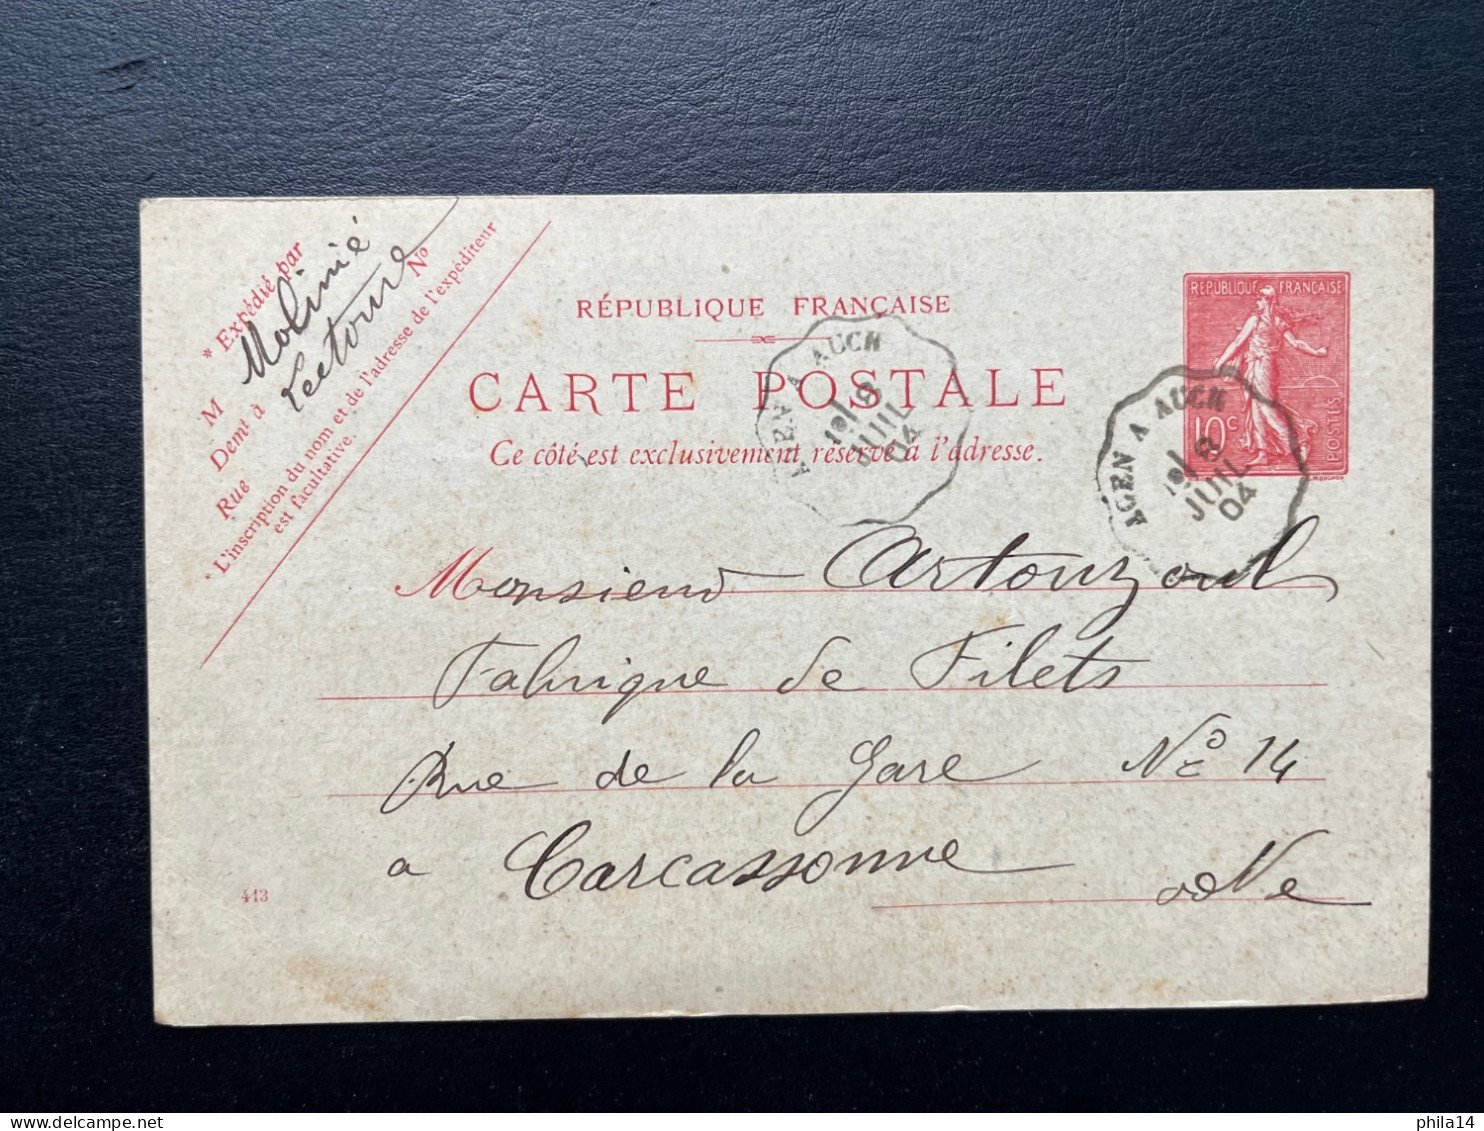 * Expédié par
M Molinié
Demt à Lectoure
Rue No
* L'inscription du nom et de l'adresse de l'expéditeur
est facultative.
RÉPUBLIQUE FRANÇAISE
CARTE POSTALE
Ce côté est exclusivement réservé à l'adresse.
RÉPUBLIQUE FRANÇAISE
10c
POSTES
AGEN A AUCH
JUIL
04
AGEN A AUCH
JUIL
04
Monsieur Artouzoul
Fabrique de Filets
Rue de la Gare No 14
a Carcassonne
413
phila14